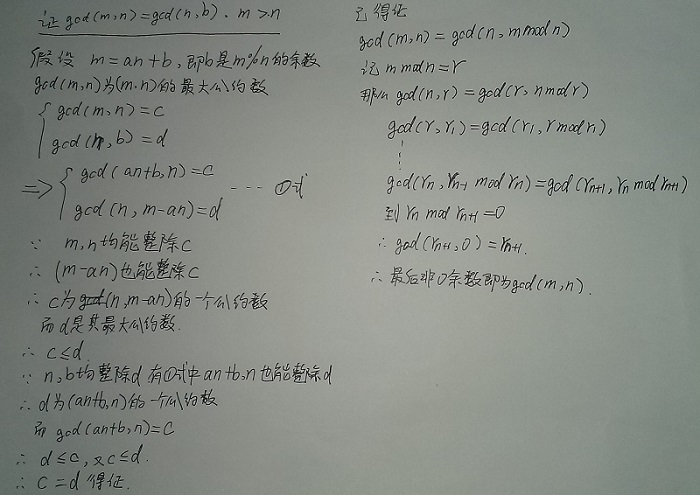 证 gcd(m,n)=gcd(n,b). m>n
假设 m=an+b,即b是m%n的余数
gcd(m,n)为(m,n)的最大公约数
{ gcd(m,n)=c
gcd(n,b)=d
=> { gcd(an+b,n)=c
gcd(n,m-an)=d ---- ①式
∵ m,n均能整除c
∴ (m-an)也能整除c
∴ c为gcd(n,m-an)的一个公约数
而d是其最大公约数.
∴ c≤d.
∵ n,b均整除d 有①式中an+b,n也能整除d
∴ d为(an+b,n)的一个公约数
而 gcd(an+b,n)=c
∴ d≤c,又c≤d.
∴ c=d 得证.
已得证
gcd(m,n)=gcd(n,m mod n)
记 m mod n=r
那么 gcd(n,r)=gcd(r,n mod r)
gcd(r,r₁)=gcd(r₁,r mod r₁)
⋮
gcd(rₙ,rₙ₋₁ mod rₙ)=gcd(rₙ₊₁,rₙ mod rₙ₊₁)
到 rₙ mod rₙ₊₁=0
∴ gcd(rₙ₊₁,0)=rₙ₊₁.
∴ 最后非0余数即为gcd(m,n).